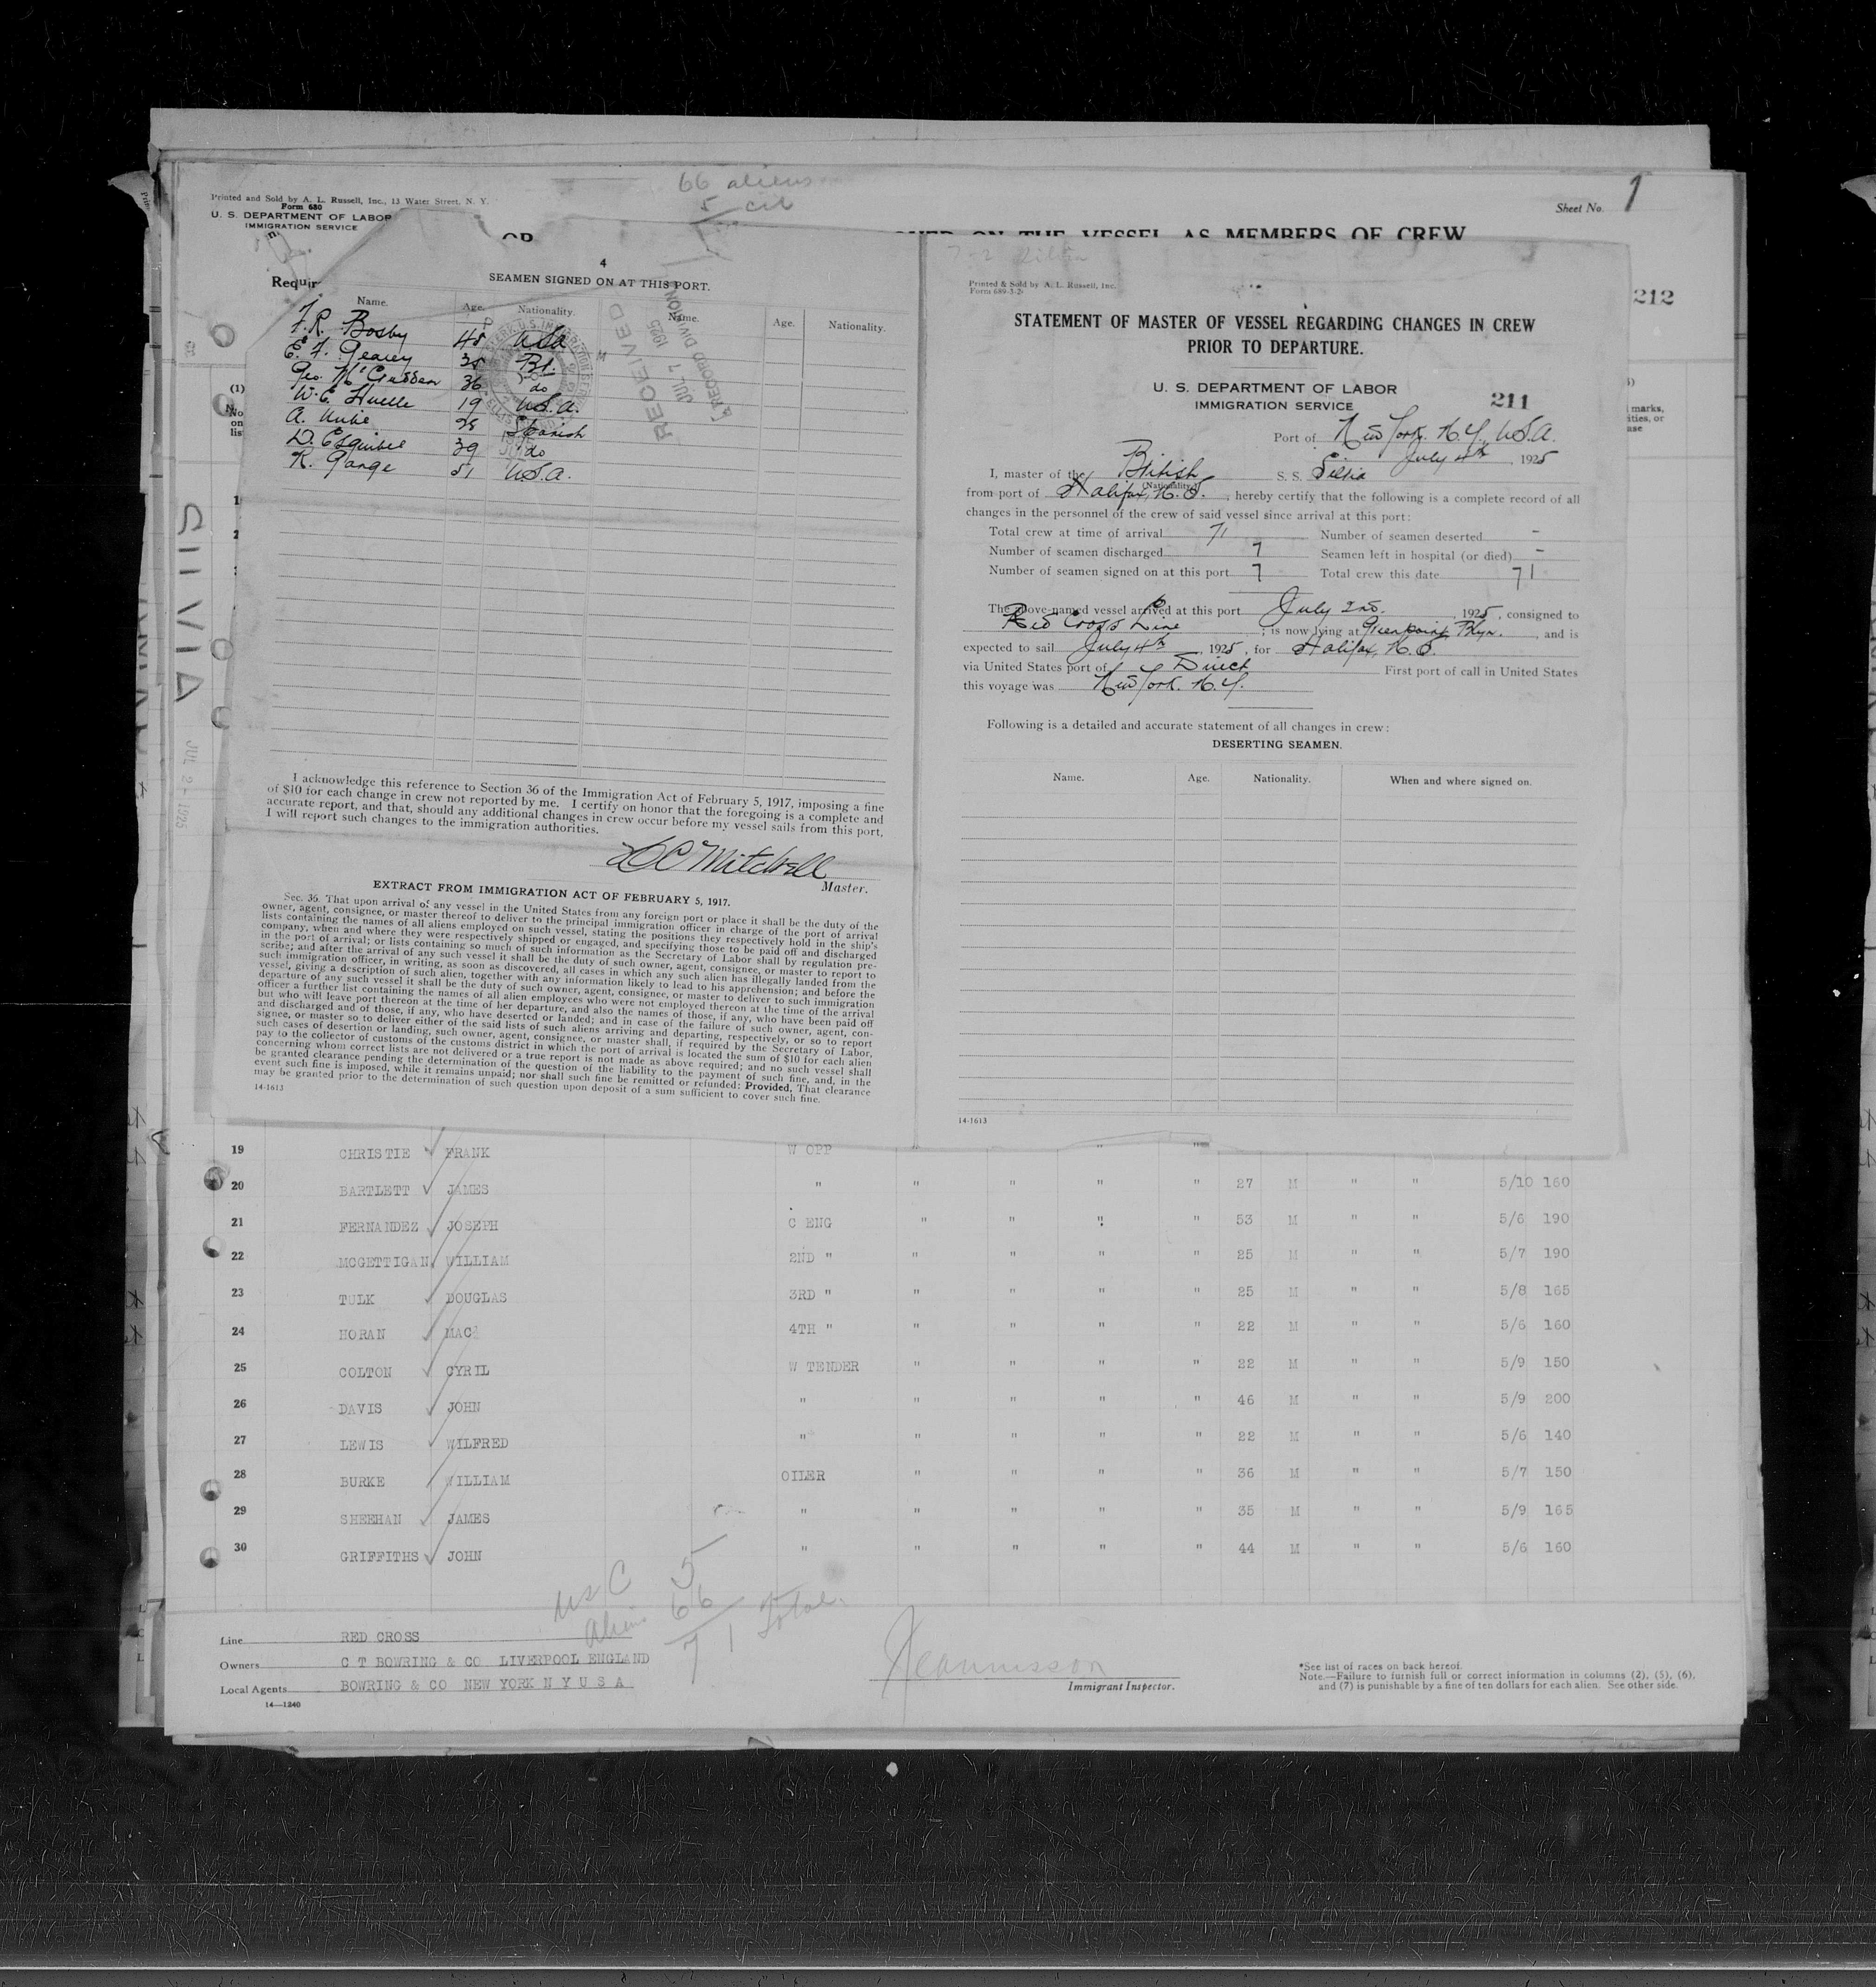 66 aliens
5 cit
Printed and Sold by A. L. Russell, Inc., 13 Water Street, N. Y.
Form 680
U. S. DEPARTMENT OF LABOR
IMMIGRATION SERVICE
Sheet No. 1
ON THE VESSEL AS MEMBERS OF CREW
212
Requir
4
SEAMEN SIGNED ON AT THIS PORT.
Name. Age. Nationality. Name. Age. Nationality.
F. R. Bosby 45 USA
E. F. Gearey 35 Br.
Geo. 36 do
W. E. 19 U.S.A.
A. 28 Spanish
D. Esquibel 39 do
R. Gange 51 U.S.A.
RECEIVED
JUL 7 1925
& RECORD DIVISION
I acknowledge this reference to Section 36 of the Immigration Act of February 5, 1917, imposing a fine
of $10 for each change in crew not reported by me. I certify on honor that the foregoing is a complete and
accurate report, and that, should any additional changes in crew occur before my vessel sails from this port,
I will report such changes to the immigration authorities.
Mitchell
Master.
EXTRACT FROM IMMIGRATION ACT OF FEBRUARY 5, 1917.
Sec. 36. That upon arrival of any vessel in the United States from any foreign port or place it shall be the duty of the
owner, agent, consignee, or master thereof to deliver to the principal immigration officer in charge of the port of arrival
lists containing the names of all aliens employed on such vessel, stating the positions they respectively hold in the ship's
company, when and where they were respectively shipped or engaged, and specifying those to be paid off and discharged
in the port of arrival; or lists containing so much of such information as the Secretary of Labor shall by regulation pre-
scribe; and after the arrival of any such vessel it shall be the duty of such owner, agent, consignee, or master to report to
such immigration officer, in writing, as soon as discovered, all cases in which any such alien has illegally landed from the
vessel, giving a description of such alien, together with any information likely to lead to his apprehension; and before the
departure of any such vessel it shall be the duty of such owner, agent, consignee, or master to deliver to such immigration
officer a further list containing the names of all alien employees who were not employed thereon at the time of the arrival
but who will leave port thereon at the time of her departure, and also the names of those, if any, who have been paid off
and discharged and of those, if any, who have deserted or landed; and in case of the failure of such owner, agent, con-
signee, or master so to deliver either of the said lists of such aliens arriving and departing, respectively, or so to report
such cases of desertion or landing, such owner, agent, consignee, or master shall, if required by the Secretary of Labor,
pay to the collector of customs of the customs district in which the port of arrival is located the sum of $10 for each alien
concerning whom correct lists are not delivered or a true report is not made as above required; and no such vessel shall
be granted clearance pending the determination of the question of the liability to the payment of such fine, and, in the
event such fine is imposed, while it remains unpaid; nor shall such fine be remitted or refunded: Provided, That clearance
may be granted prior to the determination of such question upon deposit of a sum sufficient to cover such fine.
14-1613
Printed & Sold by A. L. Russell, Inc.
Form 689-3-2
STATEMENT OF MASTER OF VESSEL REGARDING CHANGES IN CREW
PRIOR TO DEPARTURE.
U. S. DEPARTMENT OF LABOR
IMMIGRATION SERVICE
211
Port of New York. N.Y., U.S.A.
July 4th, 1925
I, master of the British S. S. Silvia
(Nationality)
from port of Halifax, N.S., hereby certify that the following is a complete record of all
changes in the personnel of the crew of said vessel since arrival at this port:
Total crew at time of arrival 71 Number of seamen deserted -
Number of seamen discharged 7 Seamen left in hospital (or died) -
Number of seamen signed on at this port 7 Total crew this date 71
The above-named vessel arrived at this port July 2nd. , 1925, consigned to
Red Cross Line ; is now lying at Greenpoint Bklyn. , and is
expected to sail July 4th , 1925, for Halifax, N.S.
via United States port of Direct First port of call in United States
this voyage was New York. N.Y.
Following is a detailed and accurate statement of all changes in crew:
DESERTING SEAMEN.
Name. Age. Nationality. When and where signed on.
14-1613
SILVIA
JUL 2 - 1925
19 CHRISTIE FRANK W OPP " "
20 BARTLETT JAMES " " " " " 27 M " " 5/10 160
21 FERNANDEZ JOSEPH C ENG " " " " 53 M " " 5/6 190
22 MCGETTIGAN WILLIAM 2ND " " " " " 25 M " " 5/7 190
23 TULK DOUGLAS 3RD " " " " " 25 M " " 5/8 165
24 HORAN MAC 4TH " " " " " 22 M " " 5/6 160
25 COLTON CYRIL W TENDER " " " " 22 M " " 5/9 150
26 DAVIS JOHN " " " " " 46 M " " 5/9 200
27 LEWIS WILFRED " " " " " 22 M " " 5/6 140
28 BURKE WILLIAM OILER " " " " 36 M " " 5/7 150
29 SHEEHAN JAMES " " " " " 35 M " " 5/9 165
30 GRIFFITHS JOHN " " " " " 44 M " " 5/6 160
US C 5
Aliens 66
71 Total.
Line RED CROSS
Owners C T BOWRING & CO LIVERPOOL ENGLAND
Local Agents BOWRING & CO NEW YORK N Y U S A
14-1240
Immigrant Inspector.
*See list of races on back hereof.
Note.—Failure to furnish full or correct information in columns (2), (5), (6),
and (7) is punishable by a fine of ten dollars for each alien. See other side.